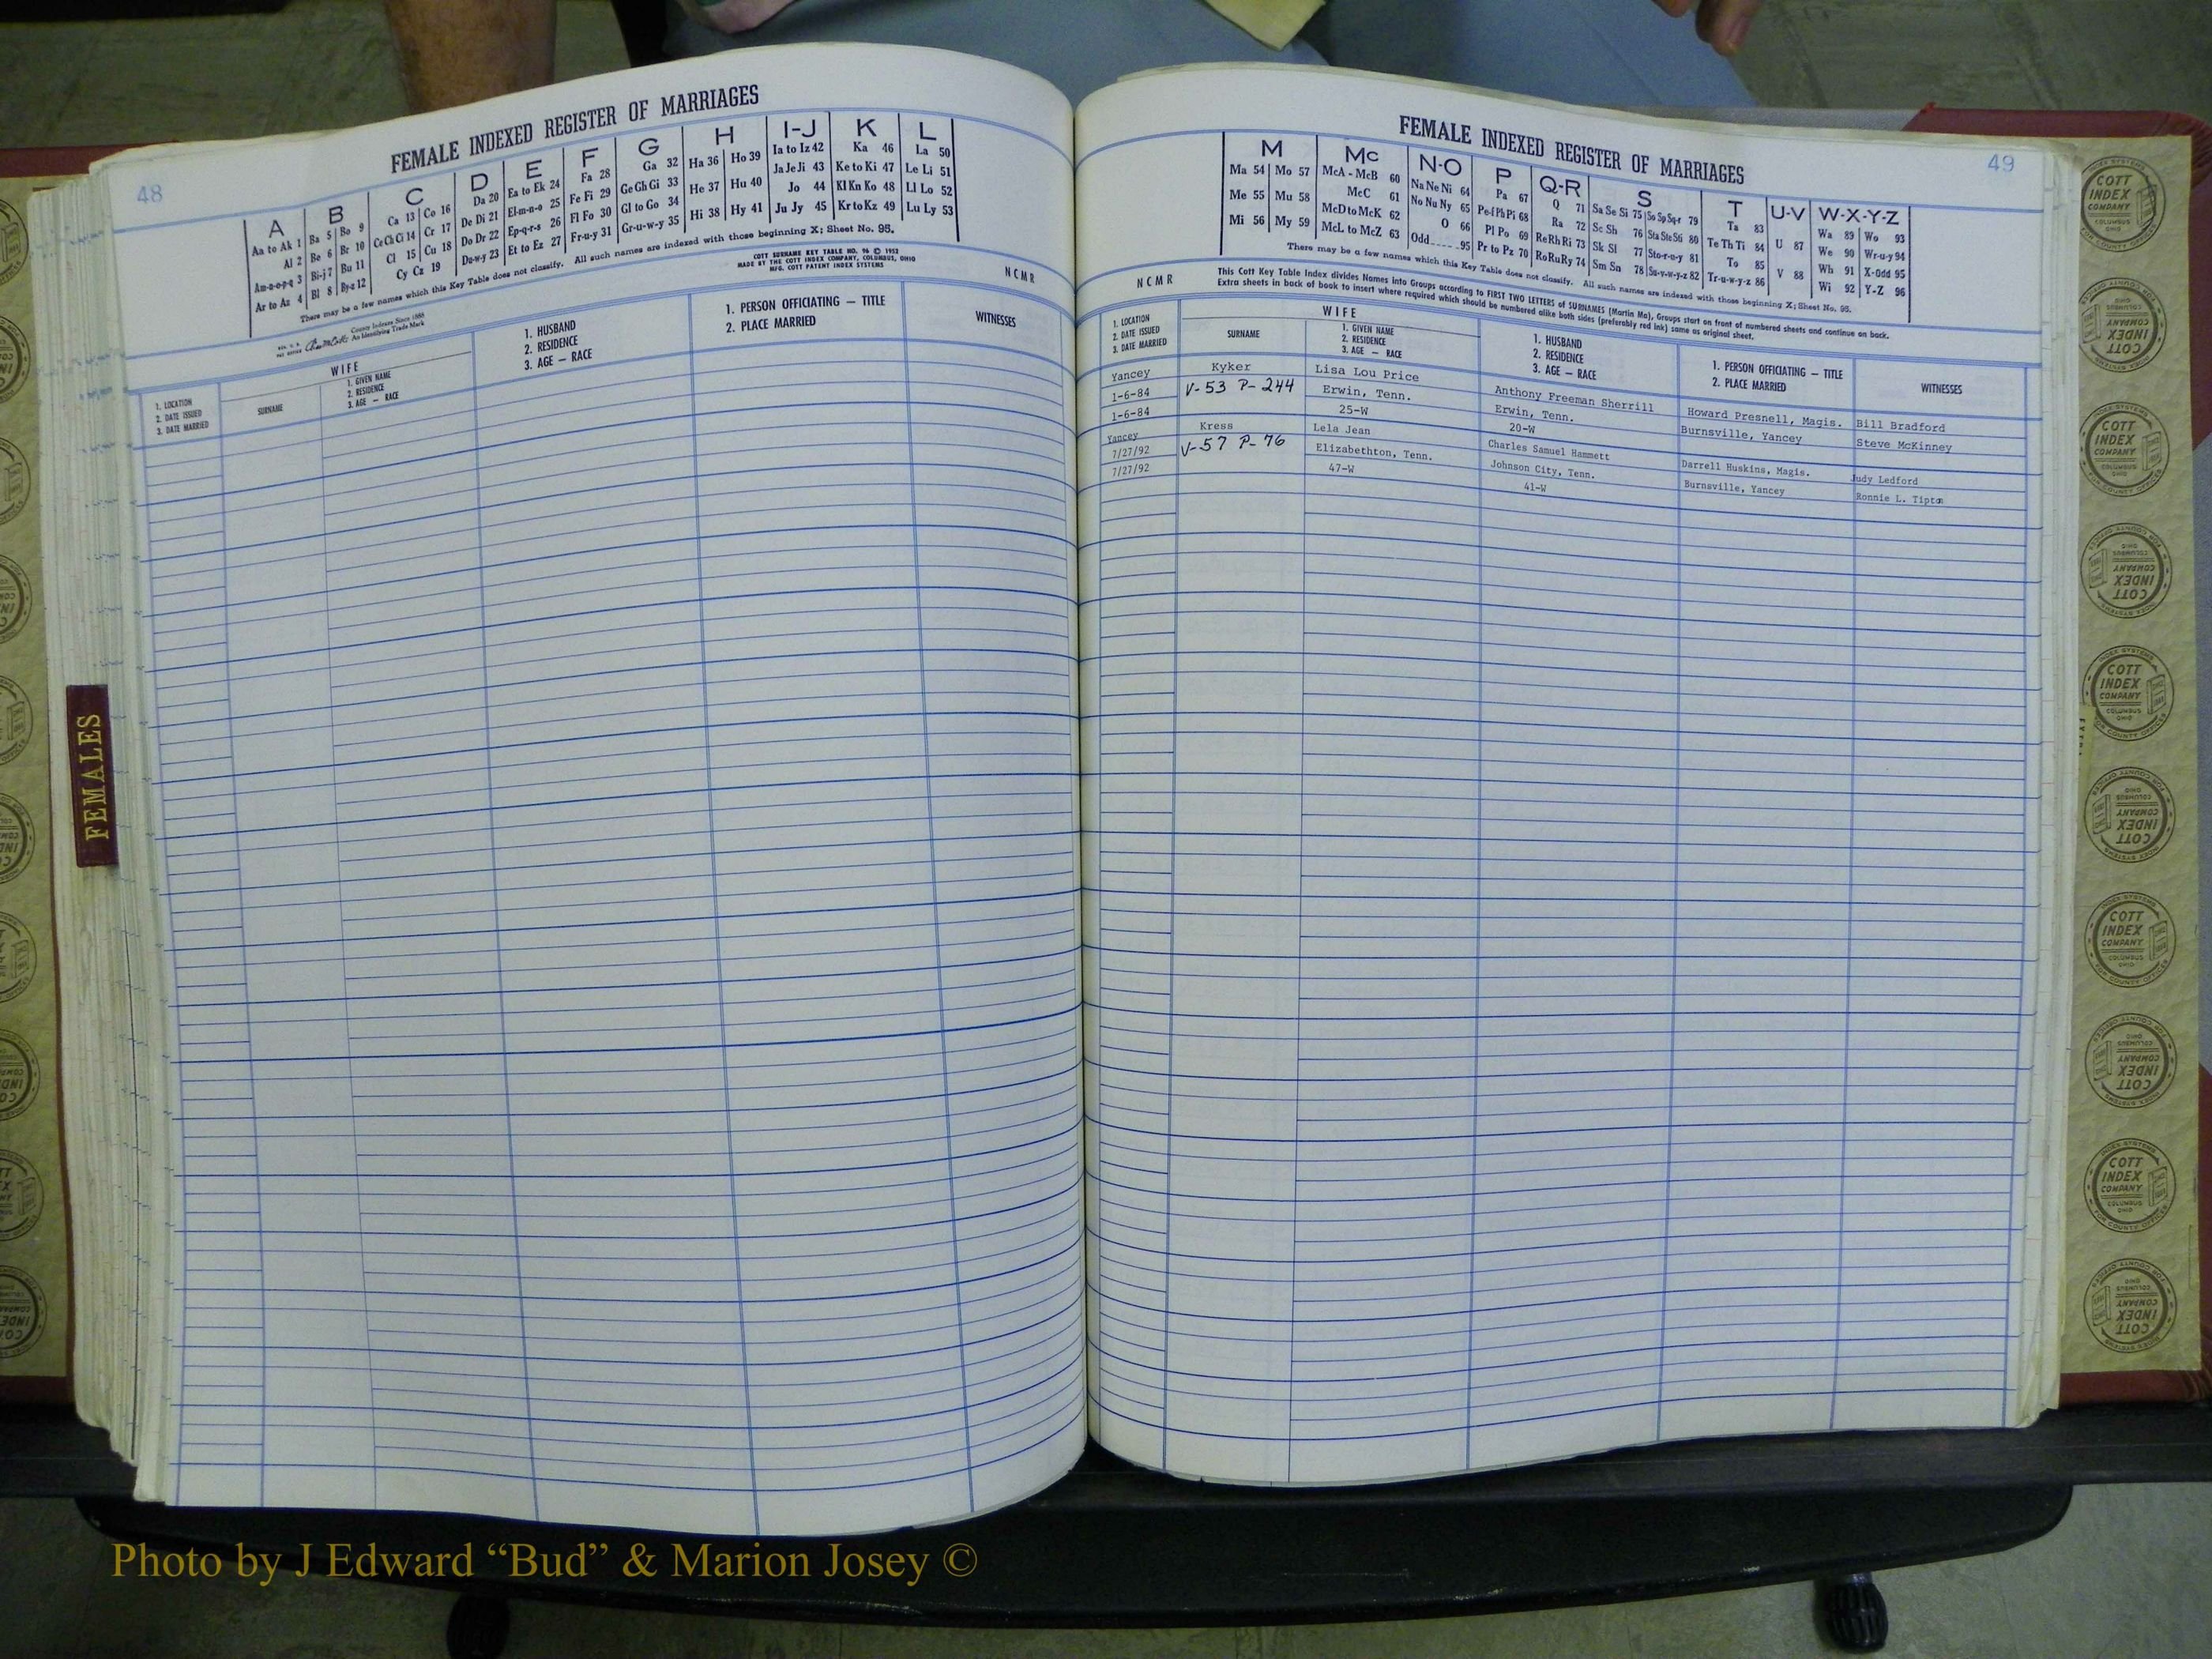 48
FEMALE INDEXED REGISTER OF MARRIAGES
A
Aa to Ak 1
Al 2
Am-n-o-p-q 3
Ar to Az 4
B
Ba 5 Bo 9
Be 6 Br 10
Bi-j 7 Bu 11
Bl 8 By-z 12
C
Ca 13 Co 16
Ce Ch Ci 14 Cr 17
Cl 15 Cu 18
Cy Cz 19
D
Da 20
De Di 21
Do Dr 22
Du-w-y 23
E
Ea to Ek 24
El-m-n-o 25
Ep-q-r-s 26
Et to Ez 27
F
Fa 28
Fe Fi 29
Fl Fo 30
Fr-u-y 31
G
Ga 32
Ge Gh Gi 33
Gl to Go 34
Gr-u-w-y 35
H
Ha 36 Ho 39
He 37 Hu 40
Hi 38 Hy 41
I-J
Ia to Iz 42
Ja Je Ji 43
Jo 44
Ju Jy 45
K
Ka 46
Ke to Ki 47
Kl Kn Ko 48
Kr to Kz 49
L
La 50
Le Li 51
Ll Lo 52
Lu Ly 53
There may be a few names which this Key Table does not classify. All such names are indexed with those beginning X; Sheet No. 95.
County Indexes Since 1888
An Identifying Trade Mark
COTT SURNAME KEY TABLE NO. 96 © 1953
MADE BY THE COTT INDEX COMPANY, COLUMBUS, OHIO
MFG. COTT PATENT INDEX SYSTEMS
NCMR
1. LOCATION
2. DATE ISSUED
3. DATE MARRIED
WIFE
SURNAME
1. GIVEN NAME
2. RESIDENCE
3. AGE — RACE
1. HUSBAND
2. RESIDENCE
3. AGE — RACE
1. PERSON OFFICIATING — TITLE
2. PLACE MARRIED
WITNESSES
FEMALES
49
FEMALE INDEXED REGISTER OF MARRIAGES
M
Ma 54 Mo 57
Me 55 Mu 58
Mi 56 My 59
Mc
McA - McB 60
McC 61
McD to McK 62
McL to McZ 63
N-O
Na Ne Ni 64
No Nu Ny 65
O 66
Odd 95
P
Pa 67
Pe-f Ph Pi 68
Pl Po 69
Pr to Pz 70
Q-R
Q 71
Ra 72
Re Rh Ri 73
Ro Ru Ry 74
S
Sa Se Si 75 So Sp Sq-r 79
Sc Sh 76 Sta Ste Sti 80
Sk Sl 77 Sto-r-u-y 81
Sm Sn 78 Su-v-w-y-z 82
T
Ta 83
Te Th Ti 84
To 85
Tr-u-w-y-z 86
U-V
U 87
V 88
W-X-Y-Z
Wa 89 Wo 93
We 90 Wr-u-y 94
Wh 91 X-Odd 95
Wi 92 Y-Z 96
There may be a few names which this Key Table does not classify. All such names are indexed with those beginning X; Sheet No. 95.
NCMR
This Cott Key Table Index divides Names into Groups according to FIRST TWO LETTERS of SURNAMES (Martin Ma), Groups start on front of numbered sheets and continue on back.
Extra sheets in back of book to insert where required which should be numbered alike both sides (preferably red ink) same as original sheet.
1. LOCATION
2. DATE ISSUED
3. DATE MARRIED
WIFE
SURNAME
1. GIVEN NAME
2. RESIDENCE
3. AGE — RACE
1. HUSBAND
2. RESIDENCE
3. AGE — RACE
1. PERSON OFFICIATING — TITLE
2. PLACE MARRIED
WITNESSES
Yancey Kyker Lisa Lou Price Anthony Freeman Sherrill Howard Presnell, Magis. Bill Bradford
1-6-84 V-53 P-244 Erwin, Tenn. Erwin, Tenn. Burnsville, Yancey Steve McKinney
1-6-84 25-W 20-W
Yancey Kress Lela Jean Charles Samuel Hammett Darrell Huskins, Magis. Judy Ledford
7/27/92 V-57 P-76 Elizabethton, Tenn. Johnson City, Tenn. Burnsville, Yancey Ronnie L. Tipton
7/27/92 47-W 41-W
COTT
INDEX
COMPANY
COLUMBUS
OHIO
FOR COUNTY OFFICES
INDEX SYSTEMS
Photo by J Edward “Bud” & Marion Josey ©